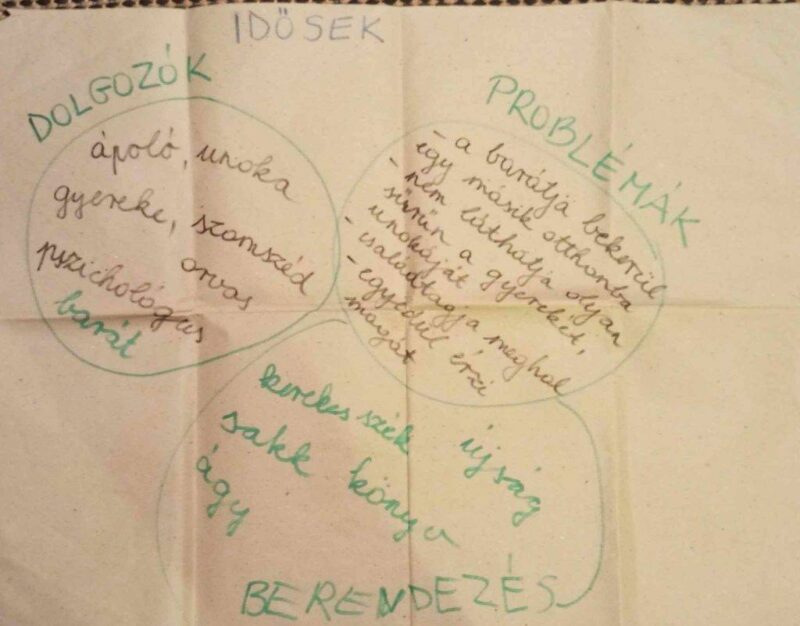 IDŐSEK
DOLGOZÓK
ápoló, unoka
gyereke, szomszéd
orvos
pszichológus
barát
PROBLÉMÁK
- a barátja bekerül
egy másik otthonba
- nem láthatja olyan
sűrűn a gyerekét,
unokáját
- családtagja meghal
- egyedül érzi
magát
kerekes szék
újság
sakk
könyv
ágy
BERENDEZÉS